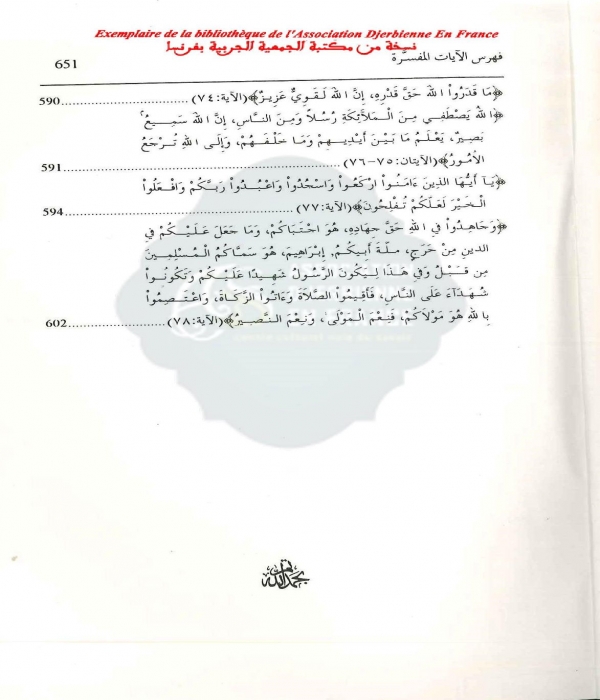 Exemplaire de la bibliothèque de l'Association Djerbienne En France
نسخة من مكتبة الجمعية الجربية بفرنسا
فهرس الآيات المفسرَّة 651
﴿مَا قَدَرُواْ اللهَ حَقَّ قَدْرِهِ، إِنَّ اللهَ لَقَوِيٌّ عَزِيزٌ﴾(الآية:٧٤)......................590
﴿اللهُ يَصْطَفِي مِنَ الْمَلآئِكَةِ رُسُلاً وَمِنَ النَّاسِ، إِنَّ اللهَ سَمِيعُ
بَصِيرٌ، يَعْلَمُ مَا بَيْنَ أَيْدِيهِمْ وَمَا خَلْفَهُمْ، وَإِلَى اللهِ تُرْجَعُ
الأُمُورُ﴾(الآيتان:٧٥-٧٦)......................591
﴿يَآ أَيُّهَا الذِينَ ءَامَنُواْ ارْكَعُواْ وَاسْجُدُواْ وَاعْبُدُواْ رَبَّكُمْ وَافْعَلُواْ
الْخَيْرَ لَعَلَّكُمْ تُفْلِحُونَ﴾(الآية:٧٧)......................594
﴿وَجَاهِدُواْ فِي اللهِ حَقَّ جِهَادِهِ، هُوَ اجْتَبَاكُمْ، وَمَا جَعَلَ عَلَيْكُمْ فِي
الدينِ مِنْ حَرَجٍ، مِلَّةَ أَبِيكُمُ, إِبْرَاهِيمَ، هُوَ سَمَّاكُمُ الْمُسْلِمِينَ
مِن قَبْلُ وَفِي هَذَا لِيَكُونَ الرَّسُولُ شَهِيدًا عَلَيْكُمْ وَتَكُونُواْ
شُهَدَآءَ عَلَى النَّاسِ، فَأَقِيمُواْ الصَّلاَةَ وَءَاتُواْ الزَّكَاةَ، وَاعْتَصِمُواْ
بِاللهِ هُوَ مَوْلاَكُمْ، فَنِعْمَ الْمَوْلَى، وَنِعْمَ النَّصِيرُ﴾(الآية:٧٨)......................602
تمت بحمد الله